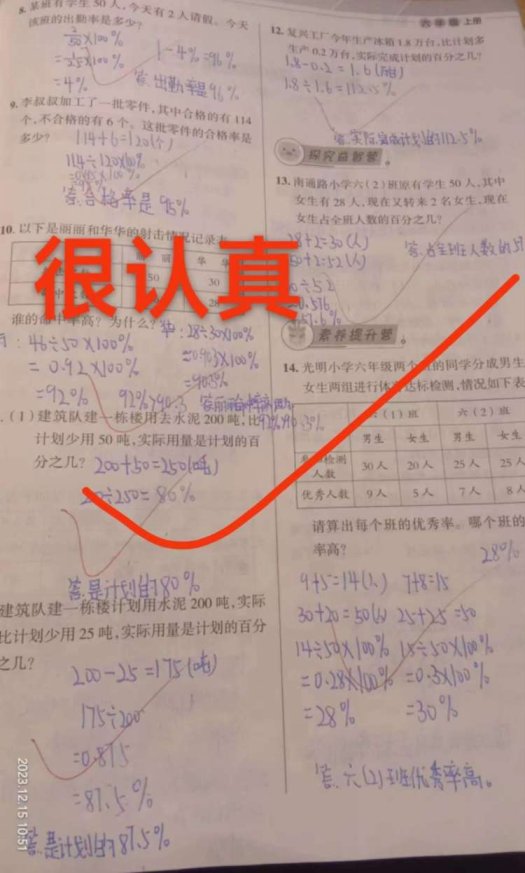 六年级 上册
8. 某班有学生 50 人,今天有 2 人请假。今天
该班的出勤率是多少?
2/50×100%
=4%
1-4%=96%
答:出勤率是96%
9. 李叔叔加工了一批零件,其中合格的有 114
个,不合格的有 6 个。这批零件的合格率是
多少?
114+6=120(个)
114÷120×100%
答:合格率是95%
10. 以下是丽丽和华华的射击情况记录表
很认真
50
30
28
谁的命中率高?为什么?
46÷50×100%
=0.92×100%
=92%
华:28÷30×100%
(1) 建筑队建一栋楼用去水泥 200 吨,比
计划少用 50 吨,实际用量是计划的百
分之几?
200+50=250(吨)
200÷250=80%
答:是计划的80%
建筑队建一栋楼计划用水泥 200 吨,实际
比计划少用 25 吨,实际用量是计划的百分
之几?
200-25=175(吨)
175÷200
=0.875
=87.5%
答:是计划的87.5%
2023.12.15 10:51
12. 复兴工厂今年生产冰箱 1.8 万台,比计划多
生产 0.2 万台,实际完成计划的百分之几?
1.8-0.2=1.6(万台)
1.8÷1.6=112.5%
答:实际完成计划的112.5%
探究直智营
13. 南通路小学六(2)班原有学生 50 人,其中
女生有 28 人,现在又转来 2 名女生,现在
女生占全班人数的百分之几?
28+2=30(人)
50+2=52(人)
30÷52
答:占全班人数的57
素养提升营
14. 光明小学六年级两个班的同学分成男生
女生两组进行体育达标检测,情况如下表
六(1)班 六(2)班
男生 女生 男生 女生
参加检测人数 30人 20人 25人 25人
优秀人数 9人 5人 7人 8人
请算出每个班的优秀率。哪个班的
率高?
28%
9+5=14(人) 7+8=15
30+20=50(人) 25+25=50
14÷50×100% 15÷50×100%
=0.28×100% =0.3×100%
=28% =30%
答:六(2)班优秀率高。